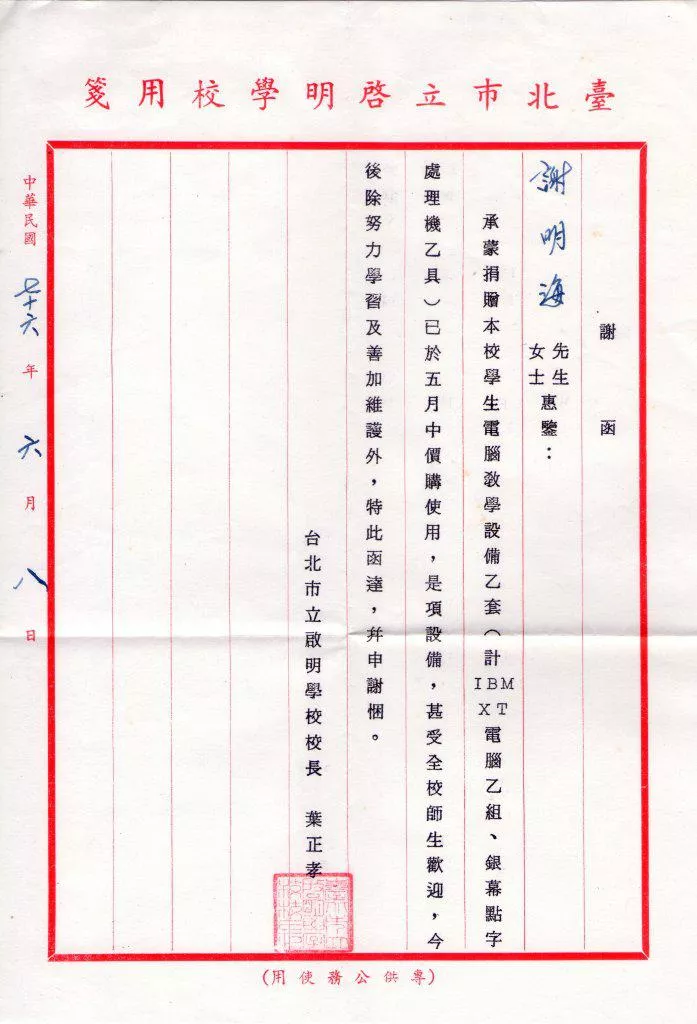 臺北市立啓明學校用箋
謝函
謝明海 先生女士惠鑒：
承蒙捐贈本校學生電腦敎學設備乙套（計IBM XT電腦乙組、銀幕點字
處理機乙具）已於五月中價購使用，是項設備，甚受全校師生歡迎，今
後除努力學習及善加維護外，特此函達，幷申謝悃。
台北市立啟明學校校長 葉正孝
中華民國七十六年六月八日
（專供公務使用）